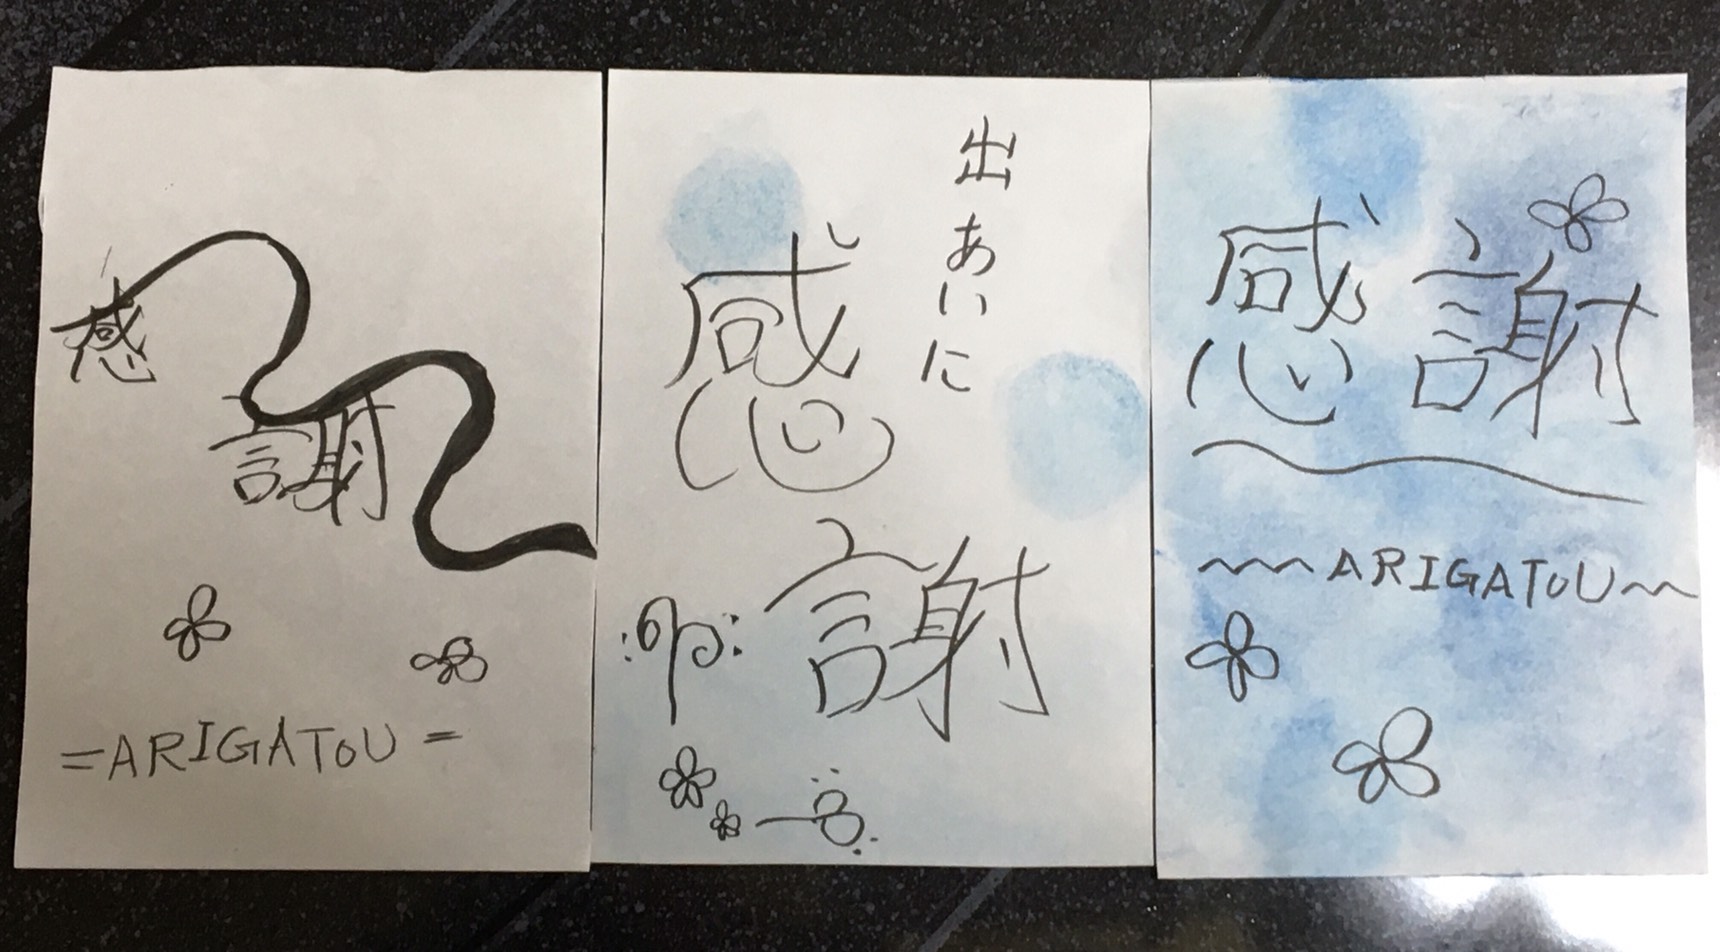 感
謝
=ARIGATOU=
出あいに
感
謝
感謝
~~~ARIGATOU~~